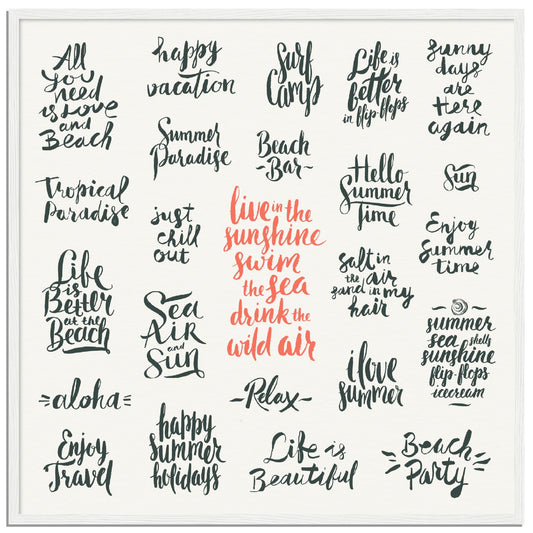 All
You
need
is Love
and
Beach
happy
vacation
Surf
Camp
Life is
better
in flip-flops
sunny
days
are
Here
again
Summer
Paradise
Beach
-Bar-
Hello
Summer
Time
Sun
Tropical
Paradise
just
chill
out
live in the
sunshine
swim
the sea
drink the
wild air
salt in
the air
sand in my
hair
Enjoy
Summer
time
Life
is
Better
at the
Beach
Sea
Air
and
Sun
i love
summer
summer
sea shells
sunshine
flip-flops
icecream
aloha
-Relax-
Enjoy
Travel
happy
summer
holidays
Life is
Beautiful
Beach
Party